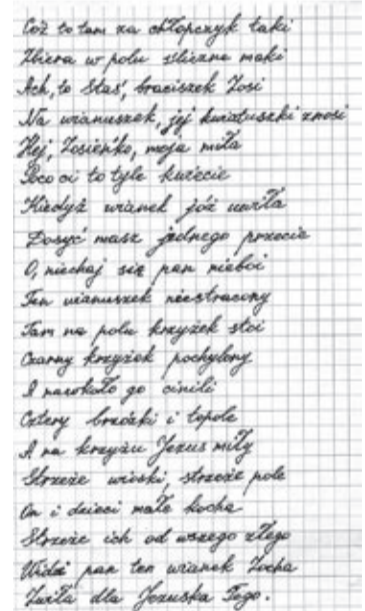 Cóż to tam za chłopczyk taki
Zbiera w polu śliczne maki
Ach, to Staś, braciszek Zosi
Na wianuszek, jej kwiatuszki znosi
Hej, Zosieńko, moja miła
Poco ci to tyle kwiecie
Kiedyż wianek jóż uwiła
Dosyć masz jednego przecie
O, niechaj się pan nieboi
Ten wianuszek niestracony
Tam na polu krzyżek stoi
Czarny krzyżek pochylony
A naokoło go cinili
Cztery brzózki i topole
A na krzyżu Jezus miły
Strzeże wioski, strzeże pole
On i dzieci małe kocha
Strzeże ich od wszego złego
Widzi pan ten wianek Zocha
Zwiła dla Jezuska Tego.